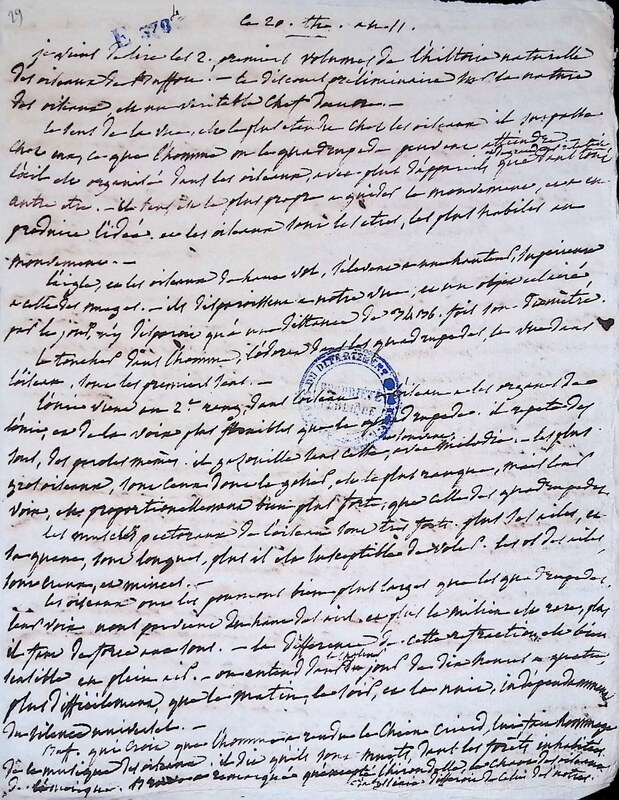 29
E 378
Le 20. ther. an 11.
je viens de lire les 2. premiers volumes de l'histoire naturelle
des oiseaux de Buffon. - le discours préliminaire sur la nature
des oiseaux, est un véritable chef d'œuvre. -
le sens de la vue, est le plus étendu chez les oiseaux il surpasse
chez eux, ce que l'homme ou le quadrupède peuvent atteindre
l'œil est organisé dans les oiseaux, avec plus d'appareil que dans tout
autre être. - ce sens est le plus propre à guider le mouvement, et à en
produire l'idée. et les oiseaux sont les êtres, les plus habiles au
mouvement. -
l'aigle, et les oiseaux de haut vol, s'élèvent à une hauteur, supérieure
à celle des nuages. - ils disparoissent à notre vue; et un objet éclairé
par le jour, n'y disparoit qu'à une distance de 3436. fois son diamètre.
le toucher dans l'homme, l'odorat dans les quadrupèdes, la vue dans
l'oiseau, sont les premiers sens. -
l'ouïe vient au 2d. rang, dans l'oiseau a les organes de
l'ouïe, et de la voix plus flexibles que le quadrupède. il répète des
sons, des paroles mêmes. il gazouille sans cesse, avec mélodie. - les plus
gros oiseaux, sont ceux dont le gosier, est le plus rauque, mais leur
voix, est proportionnellement bien plus forte, que celle des quadrupèdes.
les muscles pectoraux de l'oiseau sont très forts. plus les ailes, et
la queue, sont longues, plus il est susceptible de voler. les os des ailes,
sont creux, et minces. -
les oiseaux ont les poumons bien plus larges que les quadrupèdes,
leur voix nous parvient du haut des airs. et plus le milieu est rare, plus
il faut de force aux sons. - la différence de cette réfraction, est bien
sensible en plein air. - on entend dans le jour de dix heures à quatre
plus difficilement, que le matin, le soir, et la nuit, indépendamment
du silence universel. -
Buff. qui croit que l'homme a rendu le chien criard, lui fait hommage
de la musique des oiseaux. il dit qu'ils sont muets, dans les forêts inhabitées
de l'amérique.